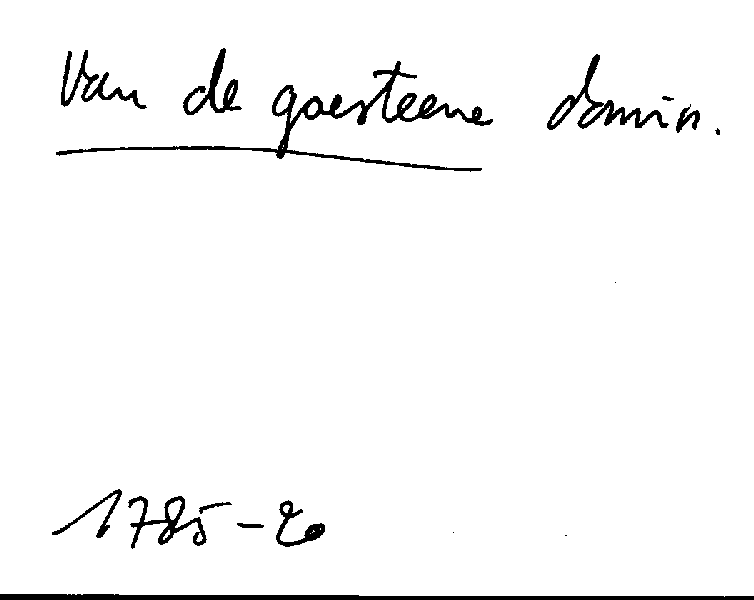 Van de goesteene domin.
1785-20